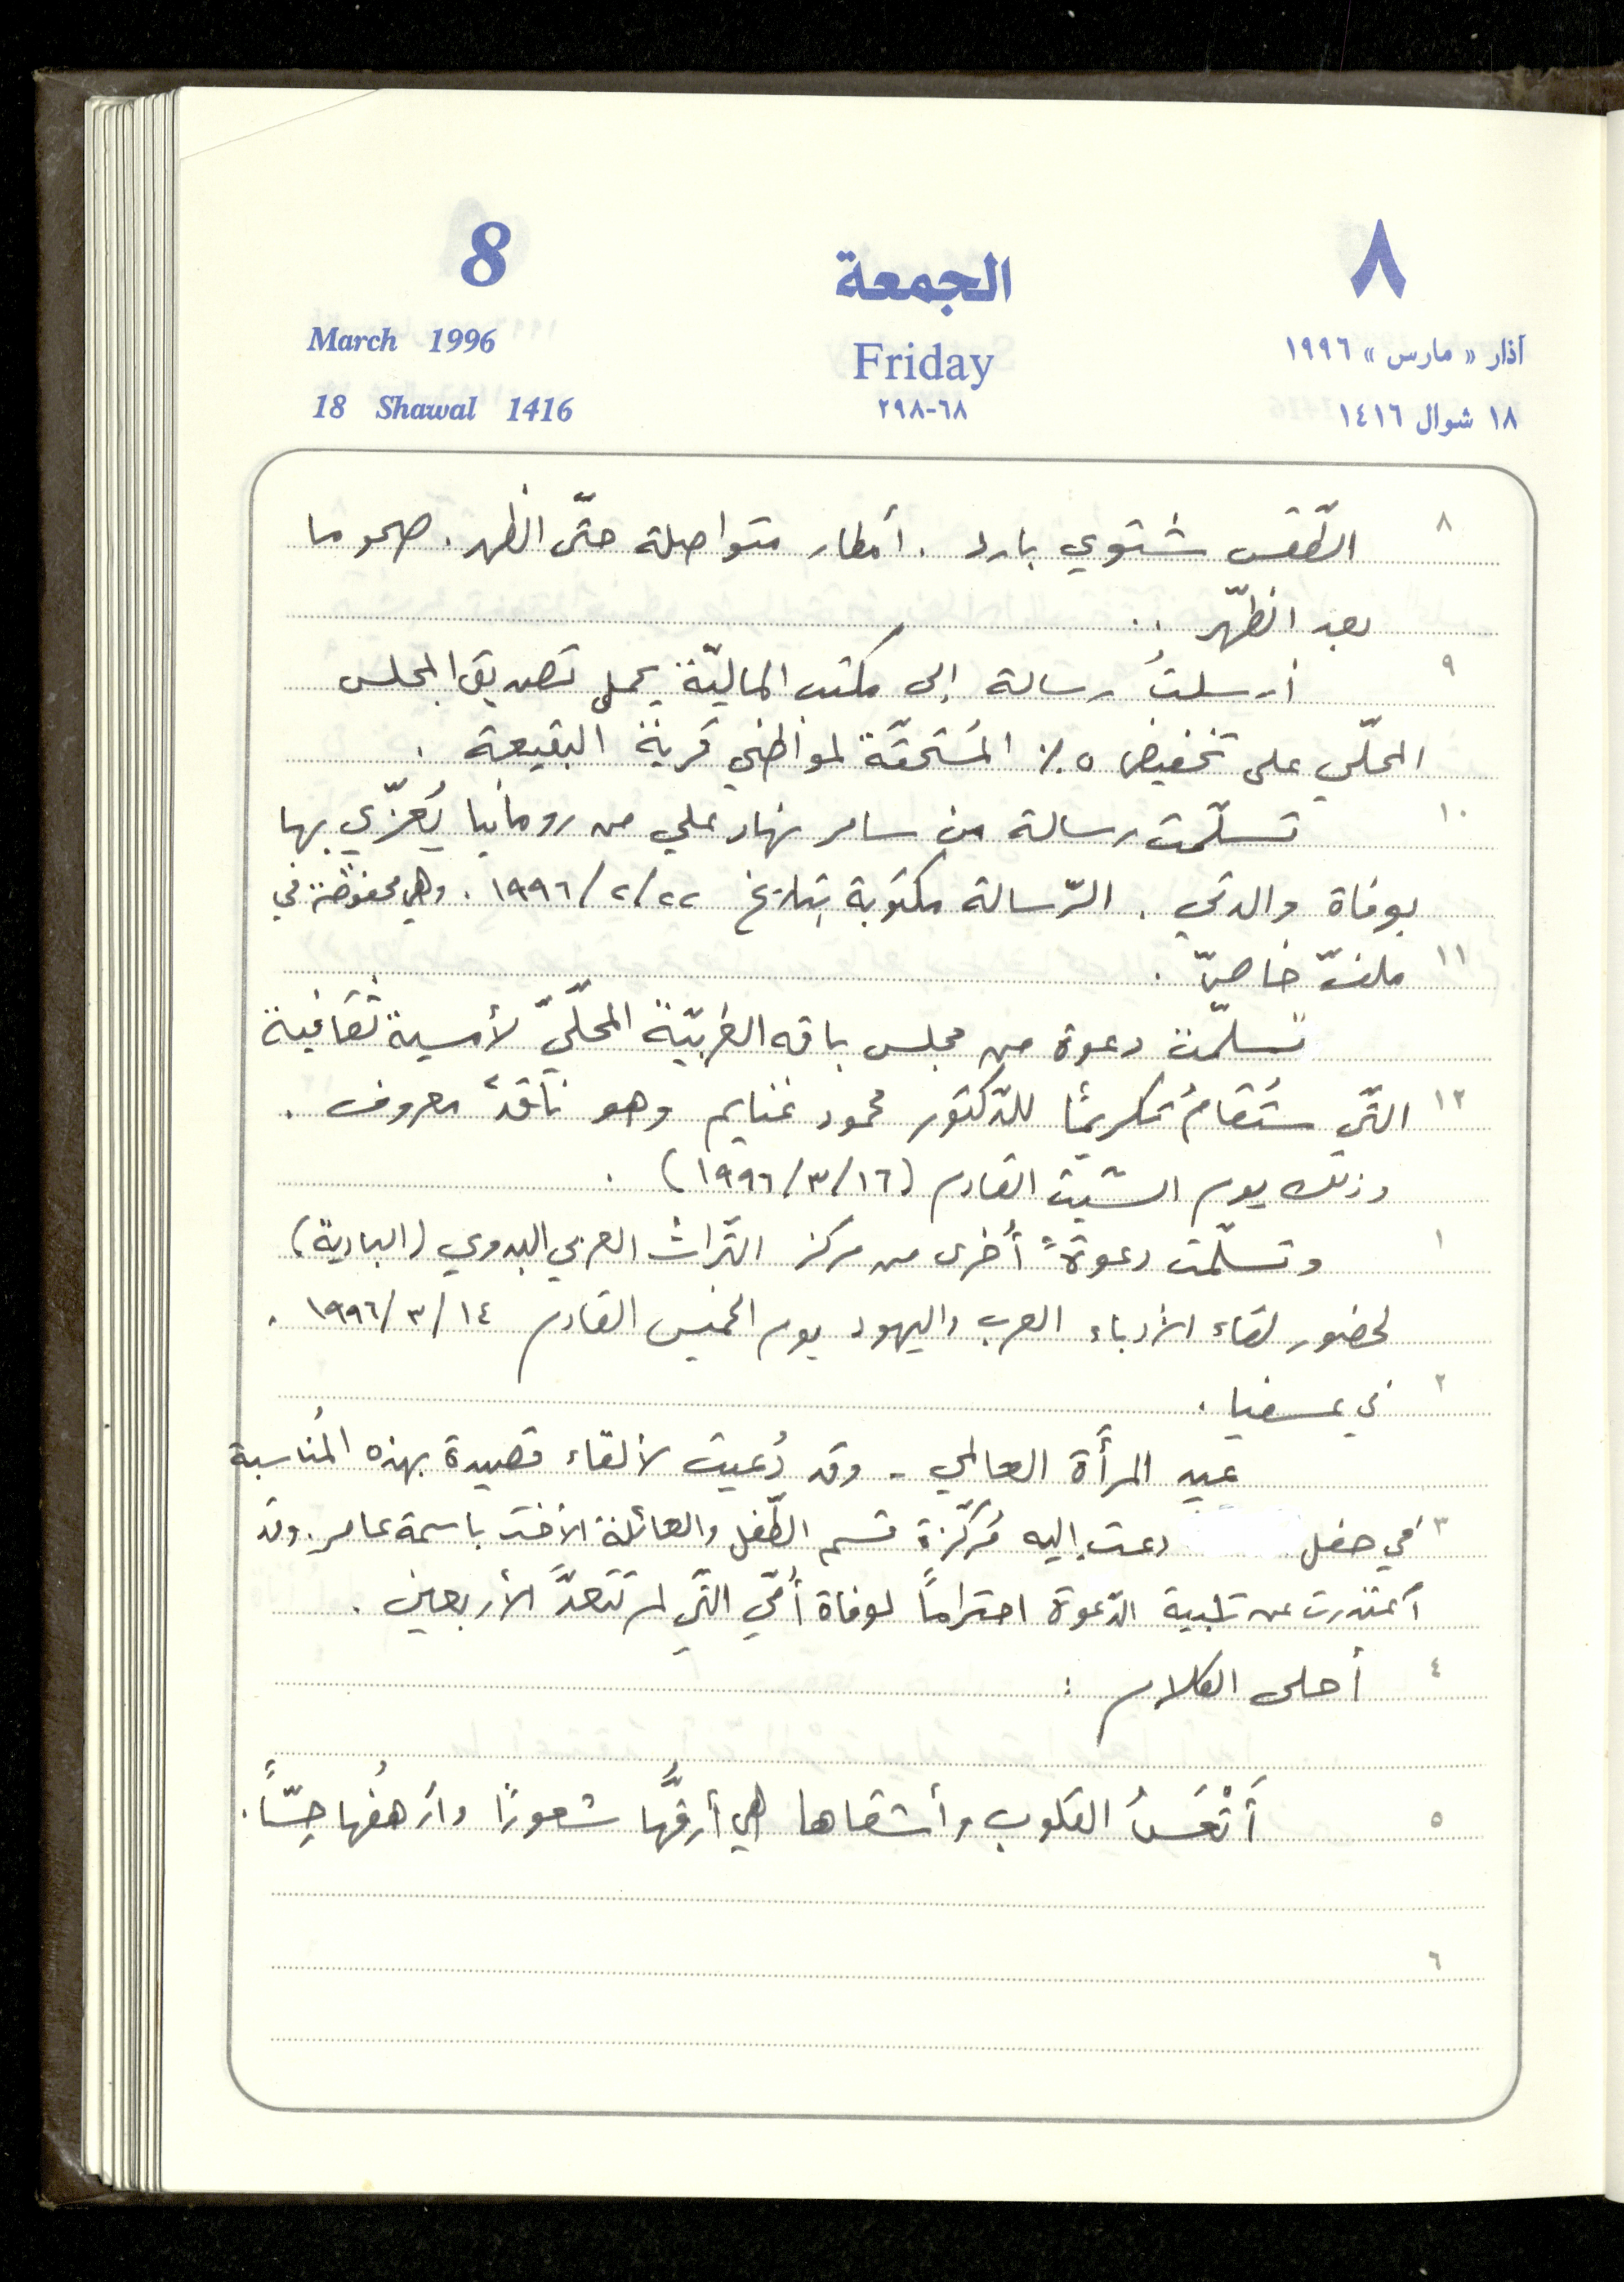 8 الجمعة ٨
March 1996 Friday آذار « مارس » ١٩٩٦
18 Shawal 1416 ٦٨-٢٩٨ ١٨ شوال ١٤١٦
٨ الطّقس شتوي بارد . أمطار متواصلة حتّى الظهر . صحو ما
بعد الظّهر ..
٩ أرسلتُ رسالة إلى مكتب الماليّة يحمل تصديق المجلس
المحلّي على تخفيض ٥٪ المُستحقّة لمواطني قرية البقيعة .
١٠ تسلّمت رسالة من سامر نهاد علي من رومانيا يُعزّي بها
بوفاة والدتي . الرّسالة مكتوبة بتاريخ ٢٢/٢/١٩٩٦ . وهي محفوظة في
١١ ملفّ خاصّ .
تسلّمت دعوة من مجلس باقه الغربيّة المحلّيّ لأمسية ثقافية
١٢ التّي ستُقامُ تكريمًا للدّكتور محمود غنايم وهو ناقدٌ معروف .
وذلك يوم السّبت القادم (١٦/٣/١٩٩٦) .
١ وتسلّمت دعوةً أُخرى من مركز التّراث العربي البدوي (البادية)
لحضور لقاء الأدباء العرب واليهود يوم الخميس القادم ١٤/٣/١٩٩٦ .
٢ في عسفيا .
عيد المرأة العالمي - وقد دُعيت لألقاء قصيدة بهذه المُناسبة
٣ في حفل دعت إليه مُركّزة قسم الطّفل والعائلة الأخت باسمة عامر . وقد
أعتذرت عن تلبية الدّعوة احترامًا لوفاة أُمّي التّي لم تتعدَّ الأربعين .
٤ أحلى الكلام :
٥ أَتْعَسُ القلوب وأشقاها هي أرقُّها شعورًا وأرهفُها حِسًّا .
٦